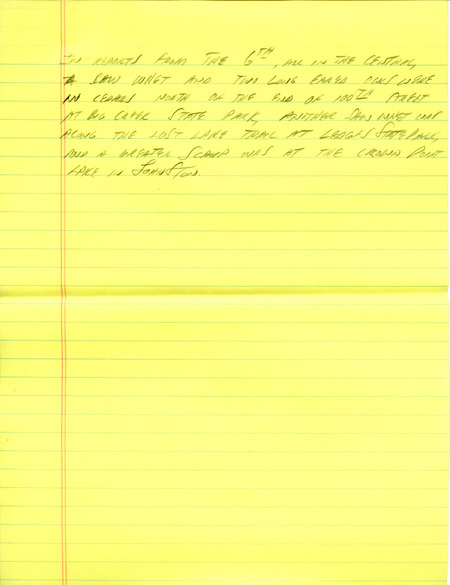 IN REPORTS FROM THE 6TH, ALL IN THE CENTRAL,
A SAW WHET AND TWO LONG EARED OWLS WERE
IN CEDARS NORTH OF THE END OF 100TH STREET
AT BIG CREEK STATE PARK, ANOTHER SAW WHET WAS
ALONG THE LOST LAKE TRAIL AT LEDGES STATE PARK,
AND A GREATER SCAUP WAS AT THE CROWN POINT
LAKE IN JOHNSTON.